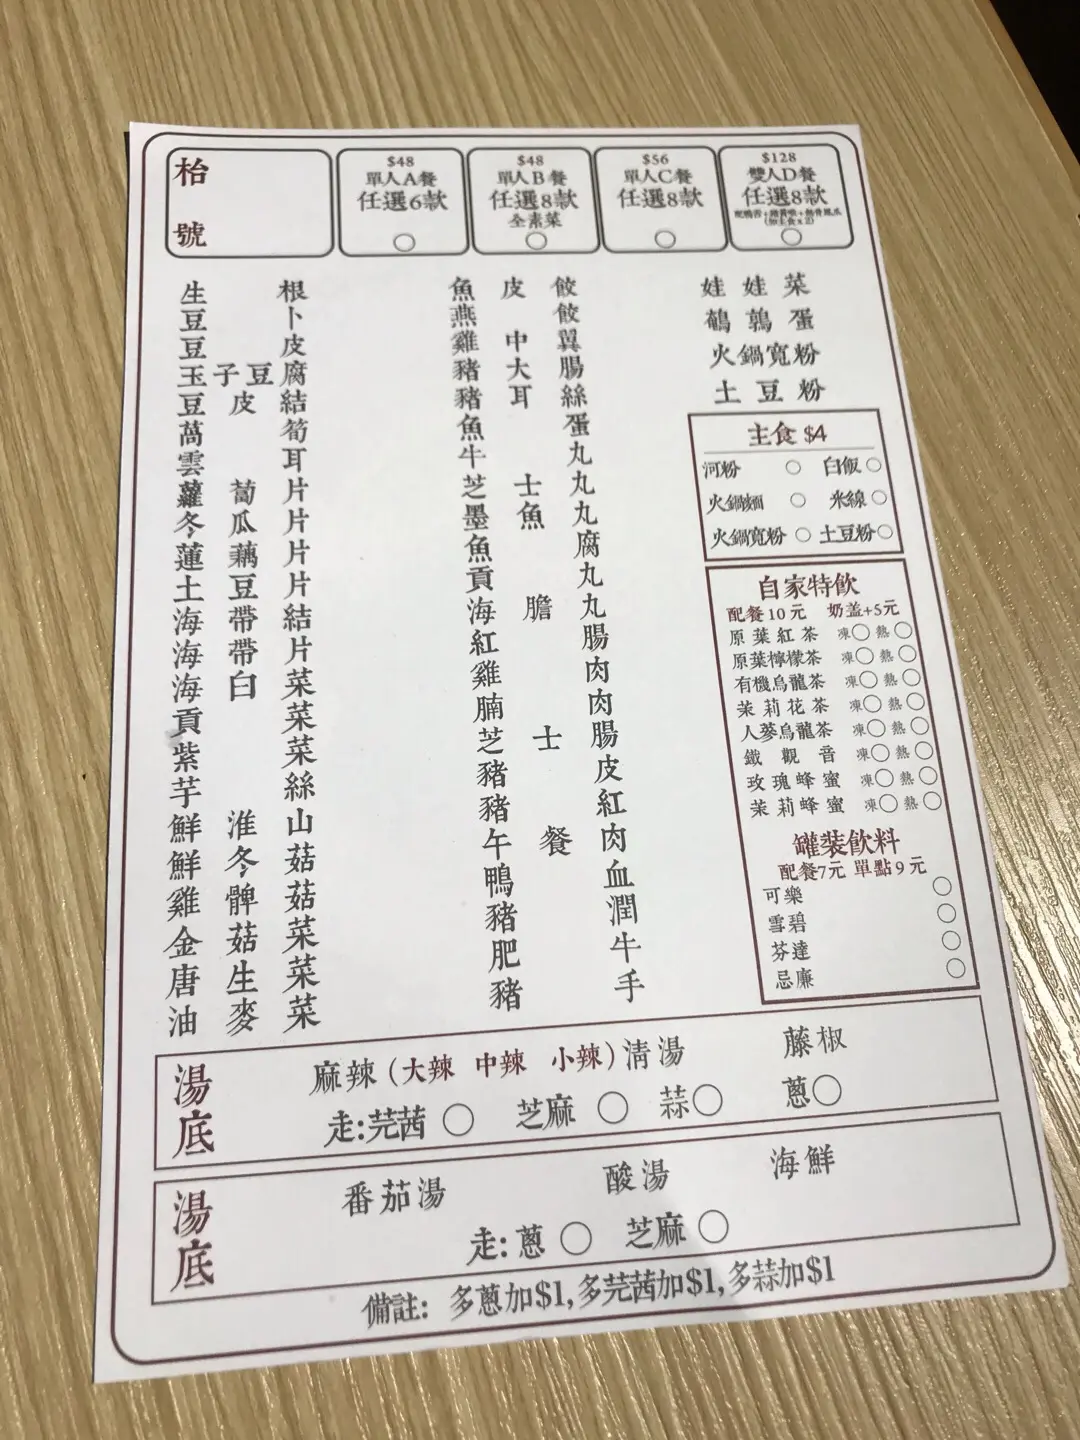 枱號
$48
單人A餐
任選6款
$48
單人B餐
任選8款
全素菜
$56
單人C餐
任選8款
$128
雙人D餐
任選8款
生根
豆卜
豆皮
玉子豆腐
豆皮結
萵筍
雲耳
蘿蔔片
冬瓜片
蓮藕片
土豆片
海帶結
海帶片
海白菜
貢菜
紫菜
芋絲
鮮淮山
鮮冬菇
雞髀菇
金菇菜
唐生菜
油麥菜
魚皮餃
燕餃
雞中翼
豬大腸
豬耳絲
魚蛋
牛丸
芝士丸
墨魚丸
魚腐
貢丸
海膽丸
紅腸
雞肉
腩肉
芝士腸
豬皮
豬紅
午餐肉
鴨血
豬潤
肥牛
豬手
娃娃菜
鵪鶉蛋
火鍋寬粉
土豆粉
主食 $4
河粉 白飯
火鍋麵 米線
火鍋寬粉 土豆粉
自家特飲
配餐10元 奶盖+5元
原葉紅茶 凍 熱
原葉檸檬茶 凍 熱
有機烏龍茶 凍 熱
茉莉花茶 凍 熱
人蔘烏龍茶 凍 熱
鐵觀音 凍 熱
玫瑰蜂蜜 凍 熱
茉莉蜂蜜 凍 熱
罐裝飲料
配餐7元 單點9元
可樂
雪碧
芬達
忌廉
湯底
麻辣(大辣 中辣 小辣) 清湯 藤椒
走:芫茜 芝麻 蒜 蔥
湯底
番茄湯 酸湯 海鮮
走:蔥 芝麻
備註: 多蔥加$1,多芫茜加$1,多蒜加$1